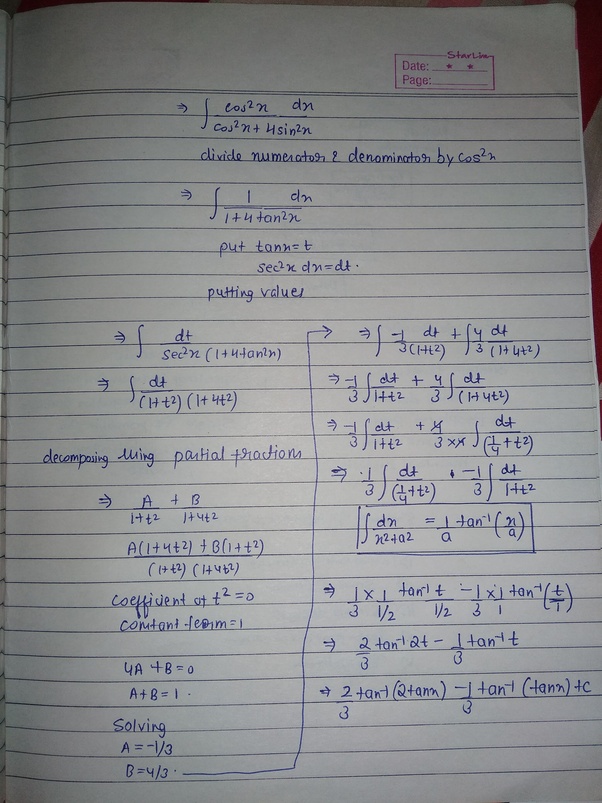 StarLine
Date: * *
Page:
⇒ ∫ cos²x dx / cos²x + 4sin²x
divide numerator & denominator by cos²x
⇒ ∫ 1 dx / 1+4tan²x
put tanx=t
sec²x dx=dt.
putting values
⇒ ∫ dt / sec²x (1+4tan²x)
⇒ ∫ dt / (1+t²) (1+4t²)
decomposing using partial fractions
⇒ A / 1+t² + B / 1+4t²
A(1+4t²) + B(1+t²) / (1+t²) (1+4t²)
coefficient of t²=0
constant term=1
4A +B=0
A+B=1.
Solving
A=-1/3
B=4/3.
⇒ ∫ -1/3 dt/(1+t²) + ∫ 4/3 dt/(1+4t²)
⇒ -1/3 ∫ dt/1+t² + 4/3 ∫ dt/(1+4t²)
⇒ -1/3 ∫ dt/1+t² + 4/3×4 ∫ dt/(1/4+t²)
⇒ 1/3 ∫ dt/(1/4+t²) -1/3 ∫ dt/1+t²
∫ dx/x²+a² = 1/a tan⁻¹(x/a)
⇒ 1/3 × 1/1/2 tan⁻¹ t/1/2 - 1/3 × 1/1 tan⁻¹(t/1)
⇒ 2/3 tan⁻¹ 2t - 1/3 tan⁻¹ t
⇒ 2/3 tan⁻¹ (2tanx) - 1/3 tan⁻¹ (tanx)+c